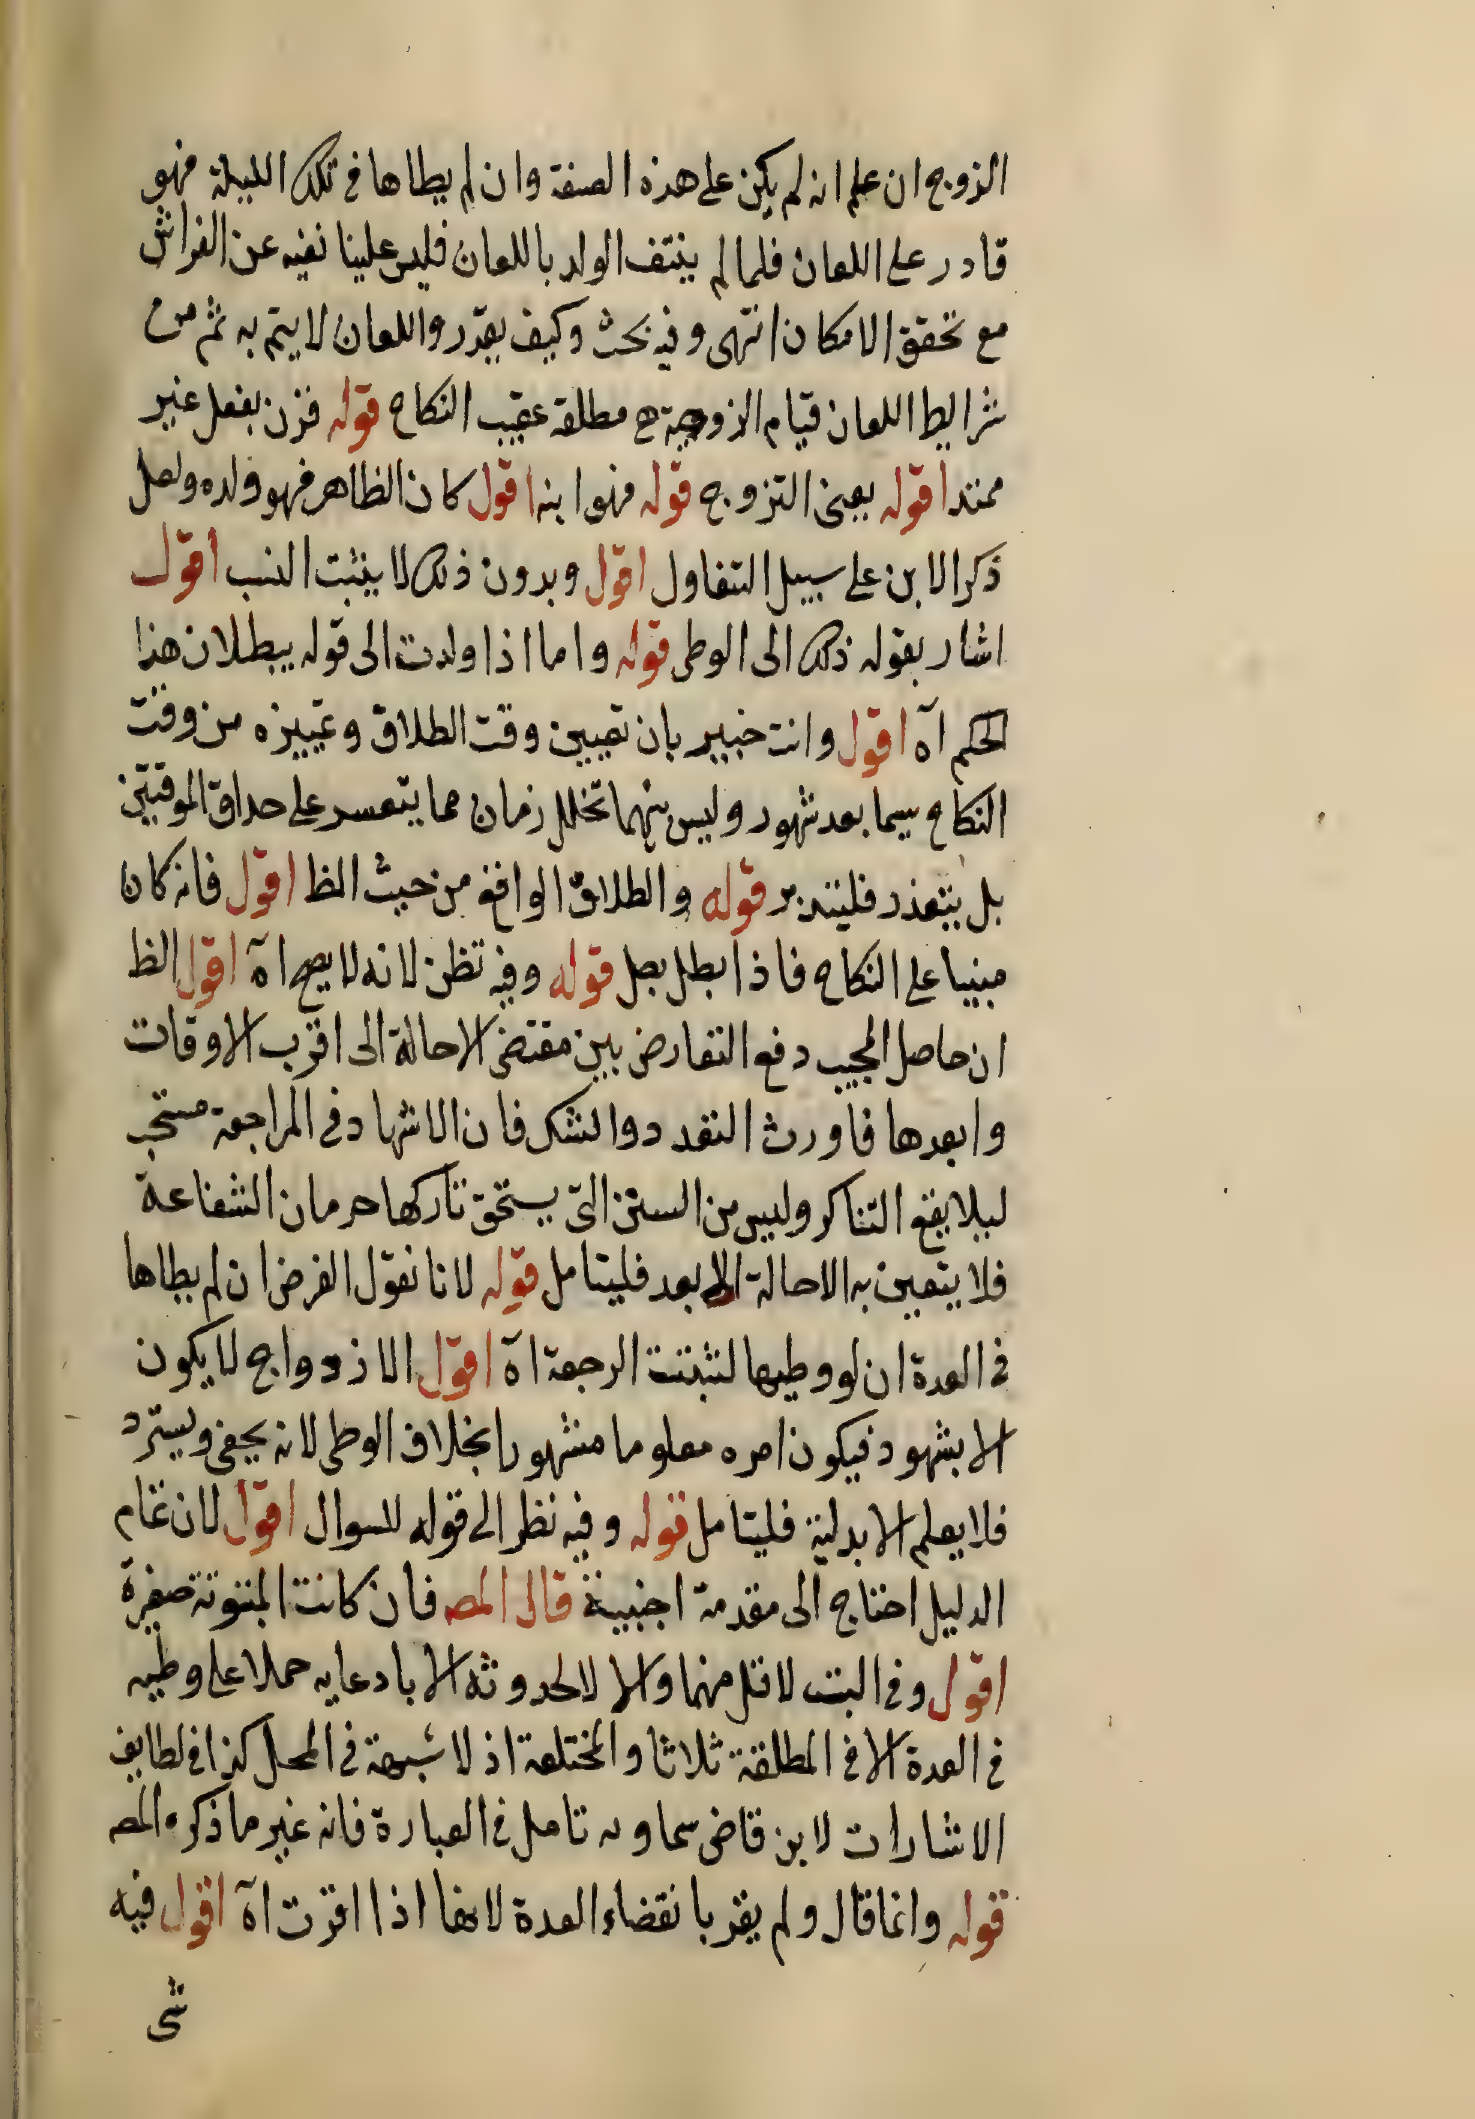 الزوج ان علم انه لم يكن على هذه الصفة وان لم يطاها فى تلك الليلة فهو
قادر على اللعان فلما لم ينتف الولد باللعان فليس علينا نفيه عن الفراش
مع تحقق الامكان انتهى وفيه بحث وكيف يقدر واللعان لا يتم به ثم من
شرايط اللعان قيام الزوجية مطلقة عقيب النكاح قوله قرن بفعل غير
ممتد اقوله يعنى التزوج قوله فهو ابنه اقول كان الظاهر فهو ولده ولعل
ذكر الابن على سبيل التفاول اقول وبدون ذلك لا يثبت النسب اقول
اشار بقوله ذلك الى الوطى قوله واما اذا ولدت الى قوله يبطلان هذا
الحكم آه اقول وانت خبير بان تعيين وقت الطلاق وتمييزه من وقت
النكاح سيما بعد شهور وليس بينهما تخلل زمان مما يتعسر على حذاق الموقتين
بل يتعذر فليتدبر قوله والطلاق الواقع من حيث الظ اقول فانه كان
مبنيا على النكاح فاذا بطل بطل قوله وفيه نظر لانه لا يصح آه اقول الظ
ان حاصل المجيب دفع التعارض بين مقتضى الاحالة الى اقرب الاوقات
وابعدها فاورث التعدد والشك فان الاشهاد فى المراجعة مستحب
ليلا يقع التناكر وليس من السنن التى يستحق تاركها حرمان الشفاعة
فلا يتعين به الاحالة الى بعد فليتامل قوله لانا نقول الفرض ان لم يطاها
فى العدة ان لو وطيها لثبتت الرجعة آه اقول الازدواج لا يكون
الا بشهود فيكون امره معلوما مشهورا بخلاف الوطى لانه يخفى ويستر د
فلا يعلم الا بدلية فليتامل قوله وفيه نظر الى قوله للسوال اقول لان تمام
الدليل احتاج الى مقدمة اجنبية قال المصه فان كانت المبتوتة صغيرة
اقول وفى البت لاقل منهما والا لا لحدوثه الا بادعايه حملا على وطيه
فى العدة الا فى المطلقة ثلاثا والمختلعة اذ لا شبهة فى المحل كذا فى لطايف
الاشارات لابن قاضى سماونه تامل فى العبارة فانه غير ما ذكره المصه
قوله وانما قال ولم يقر بانقضاء العدة لانها اذا اقرت آه اقول فيه
شى